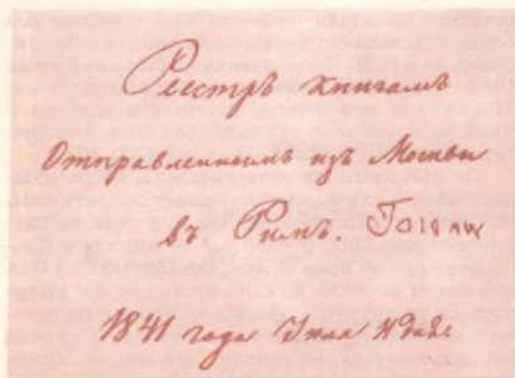 Реестръ книгамъ
Отправленнымъ изъ Москвы
въ Римъ. Гоголю
1841 года Июля 11 дня.